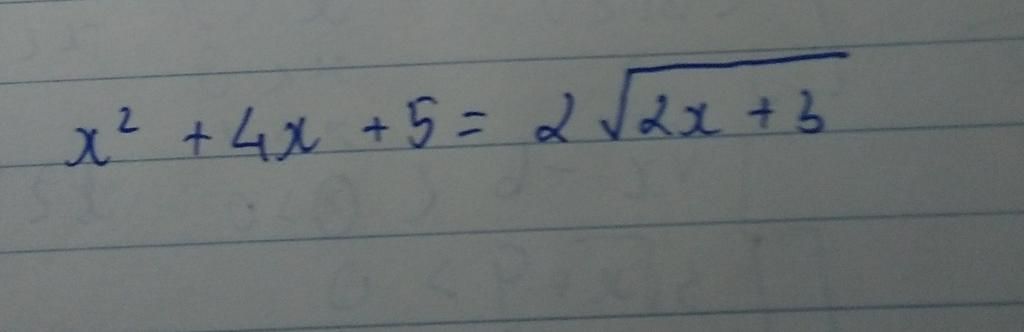 x² + 4x + 5 = 2√(2x + 3)